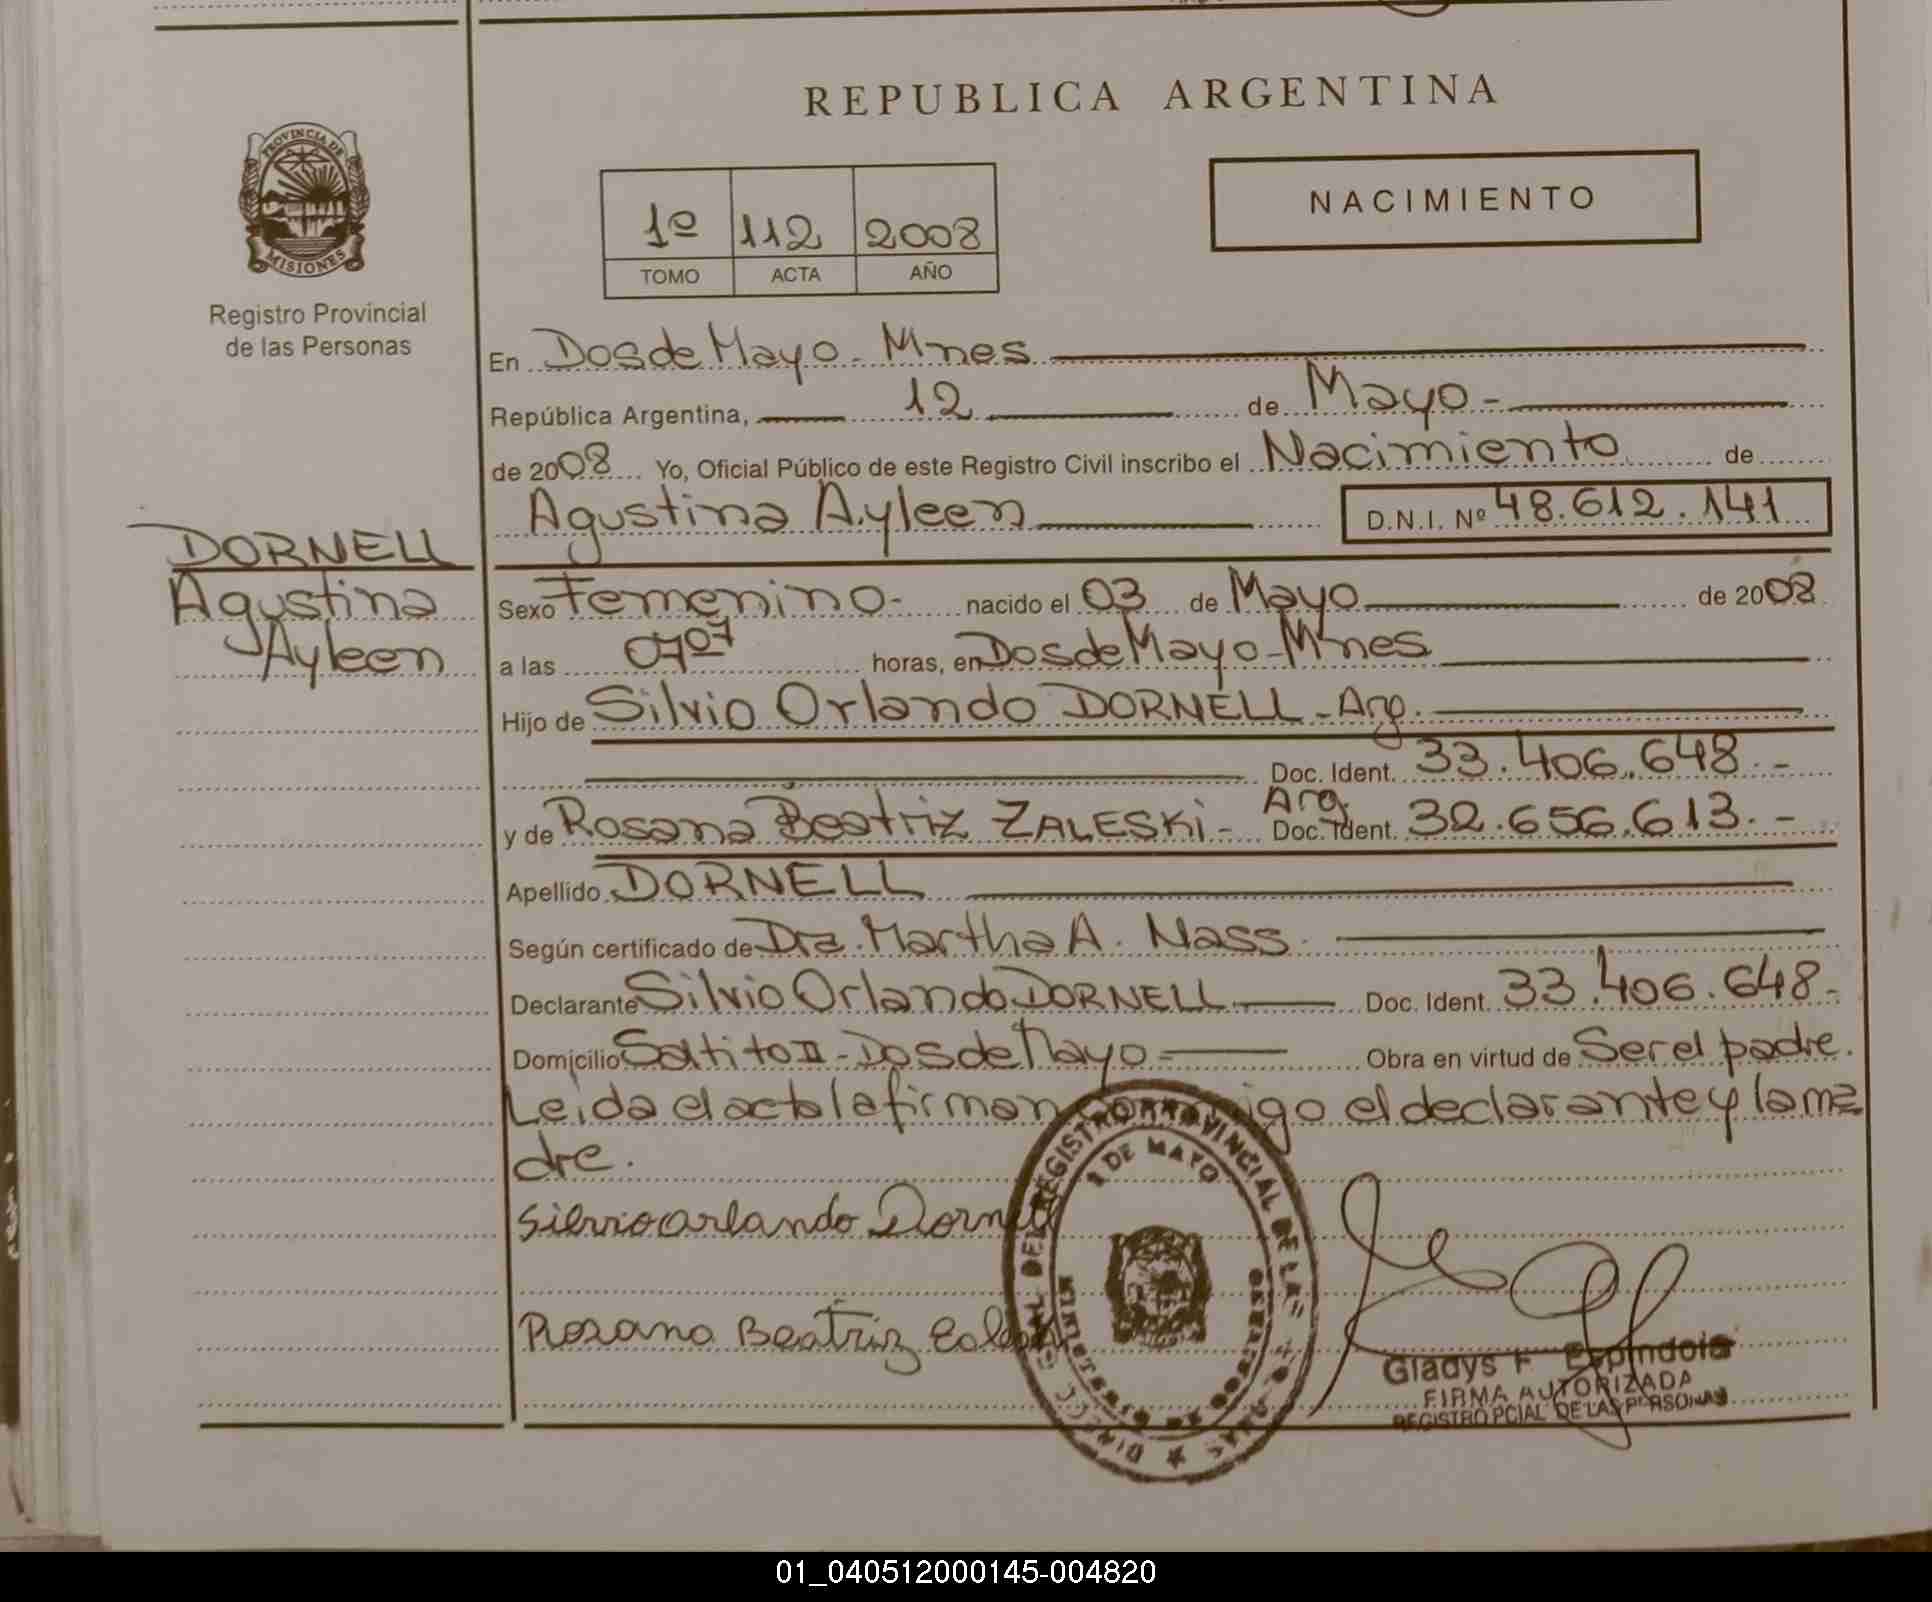 REPUBLICA ARGENTINA
PROVINCIA DE
MISIONES
Registro Provincial
de las Personas
1º 112 2008
TOMO ACTA AÑO
NACIMIENTO
En Dos de Mayo - Mnes
República Argentina, 12 de Mayo -
de 2008 Yo, Oficial Público de este Registro Civil inscribo el Nacimiento de
Agustina Ayleen D.N.I. Nº 48.612.141
DORNELL
Agustina
Ayleen
Sexo Femenino - nacido el 03 de Mayo de 2008
a las 07 07 horas, en Dos de Mayo - Mnes
Hijo de Silvio Orlando DORNELL - Arg.
Doc. Ident. 33.406.648 -
y de Rosana Beatriz ZALESKi - Arg. Doc. Ident. 32.656.613. -
Apellido DORNELL
Según certificado de Dra. Martha A. Nass.
Declarante Silvio Orlando DORNELL Doc. Ident. 33.406.648 -
Domicilio Saltito II - Dos de Mayo - Obra en virtud de Ser el padre.
Leida el acta la firman el declarante y la ma
dre.
REGISTRO PROVINCIAL DE LAS
DE MAYO
Silvio Orlando Dornell
Rosana Beatriz
Gladys F. Espindola
FIRMA AUTORIZADA
REGISTRO PCIAL DE LAS PERSONAS
01_040512000145-004820